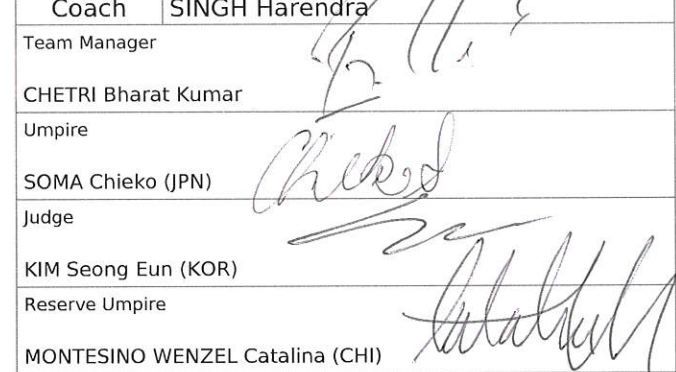 Coach SINGH Harendra
Team Manager
CHETRI Bharat Kumar
Umpire
Chieko
SOMA Chieko (JPN)
Judge
KIM Seong Eun (KOR)
Reserve Umpire
MONTESINO WENZEL Catalina (CHI)